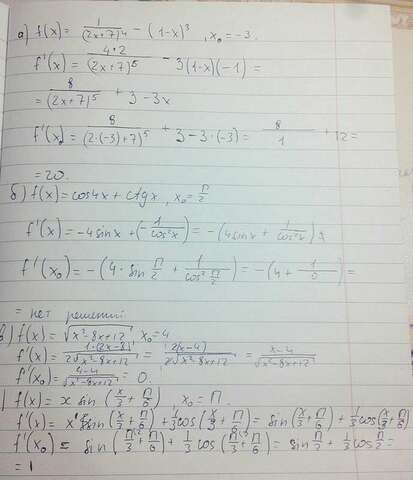 а) f(x) = 1/(2x+7)⁴ − (1−x)³, x₀ = −3.
f'(x) = 4·2/(2x+7)⁵ − 3(1−x)(−1) =
= 8/(2x+7)⁵ + 3 − 3x
f'(x₀) = 8/(2·(−3)+7)⁵ + 3 − 3·(−3) = 8/1 + 12 =
= 20.
б) f(x) = cos4x + ctgx, x₀ = П/2
f'(x) = −4sinx + (−1/cos²x) = −(4sinx + 1/cos²x)
f'(x₀) = −(4·sin П/2 + 1/cos² П/2) = −(4 + 1/0) =
= нет решений
в) f(x) = √(x²−8x+12) x₀ = 4
f'(x) = 1·(2x−8)/2√(x²−8x+12) = 2(x−4)/2√(x²−8x+12) = x−4/√(x²−8x+12)
f'(x₀) = 4−4/√(x²−8x+12) = 0.
) f(x) = x sin (x/3 + П/6) x₀ = П.
f'(x) = x' sin (x/3 + П/6) + 1/3 cos (x/3 + П/6) = sin (x/3 + П/6) + 1/3 cos (x/3 + П/6)
f'(x₀) = sin (П/3 + П/6) + 1/3 cos (П/3 + П/6) = sin П/2 + 1/3 cos П/2 =
= 1